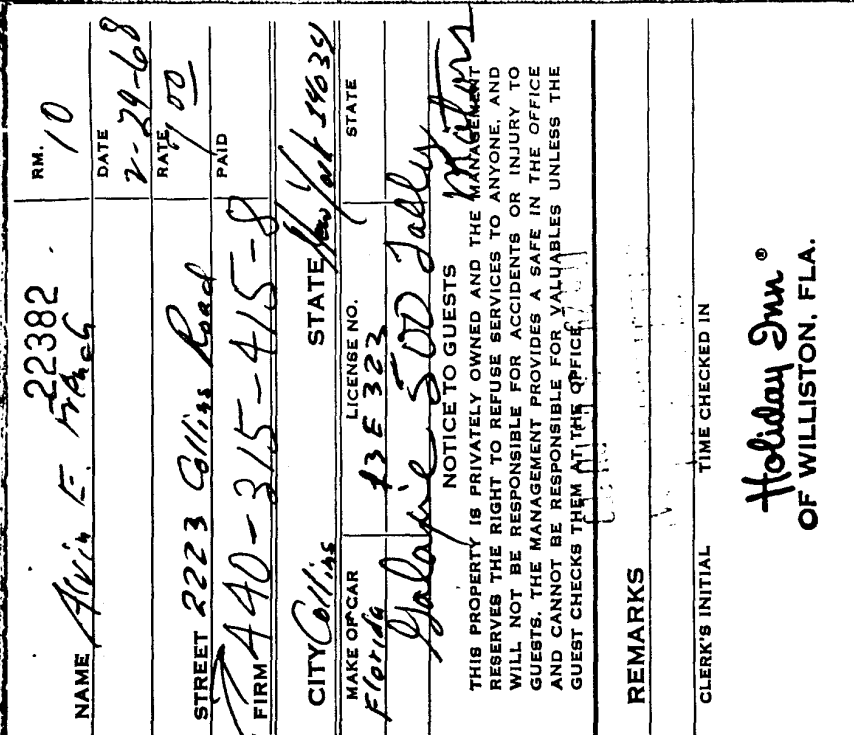 22382
NAME Alvin E. RM. 10
DATE 2-29-68
STREET 2223 Collins Road RATE 7 00
FIRM 440-315-415-8 PAID
CITY Collins STATE New York 14034
MAKE OF CAR LICENSE NO. STATE
Florida 13E323
Galaxie 500 Tally Motors
NOTICE TO GUESTS
THIS PROPERTY IS PRIVATELY OWNED AND THE MANAGEMENT
RESERVES THE RIGHT TO REFUSE SERVICES TO ANYONE, AND
WILL NOT BE RESPONSIBLE FOR ACCIDENTS OR INJURY TO
GUESTS. THE MANAGEMENT PROVIDES A SAFE IN THE OFFICE
AND CANNOT BE RESPONSIBLE FOR VALUABLES UNLESS THE
GUEST CHECKS THEM AT THE OFFICE.
REMARKS
CLERK'S INITIAL TIME CHECKED IN
Holiday Inn®
OF WILLISTON, FLA.